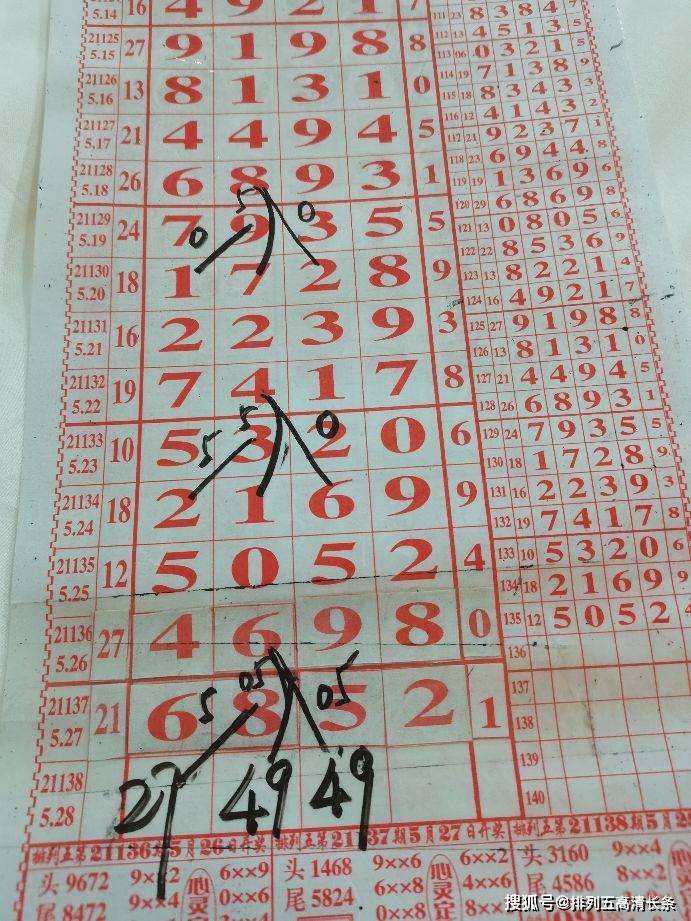 5.14 16 4 9 2 1 7
21125 5.15 27 9 1 9 8 8
21126 5.16 13 8 1 3 1 0
21127 5.17 21 4 4 9 4 5
21128 5.18 26 6 8 9 3 1
5 0 0
21129 5.19 24 7 9 3 5 5
21130 5.20 18 1 7 2 8 9
21131 5.21 16 2 2 3 9 3
21132 5.22 19 7 4 1 7 8
5 5 0
21133 5.23 10 5 3 2 0 6
21134 5.24 18 2 1 6 9 9
21135 5.25 12 5 0 5 2 4
21136 5.26 27 4 6 9 8 0
5 05 05
21137 5.27 21 6 8 5 2 1
21138 5.28
27 49 49
111 23 8 3 8 4 7
112 13 4 5 1 3 5
113 06 0 3 2 1 5
114 19 7 1 3 8 9
115 18 8 3 4 3 3
116 12 4 1 4 3 2
117 21 9 2 3 7 1
118 23 6 9 4 4 8
119 19 1 3 6 9 6
120 29 6 8 6 9 8
121 13 0 8 0 5 6
122 22 8 5 3 6 9
123 13 8 2 2 1 4
124 16 4 9 2 1 7
125 27 9 1 9 8 8
126 13 8 1 3 1 0
127 21 4 4 9 4 5
128 26 6 8 9 3 1
129 24 7 9 3 5 5
130 18 1 7 2 8 9
131 16 2 2 3 9 3
132 19 7 4 1 7 8
133 10 5 3 2 0 6
134 18 2 1 6 9 9
135 12 5 0 5 2 4
136
137
138
139
140
排列五第21136期5月26日开奖
头 9672 9××2 6××9
尾 8472 9××4 0××6
心灵
排列五第21137期5月27日开奖
头 1468 9××6 6××2
尾 5824 6××8 4××6
心灵
排列五第21138期5月28
头 3160 9××4
尾 4586 8××2
心灵
搜狐号@排列五高清长条